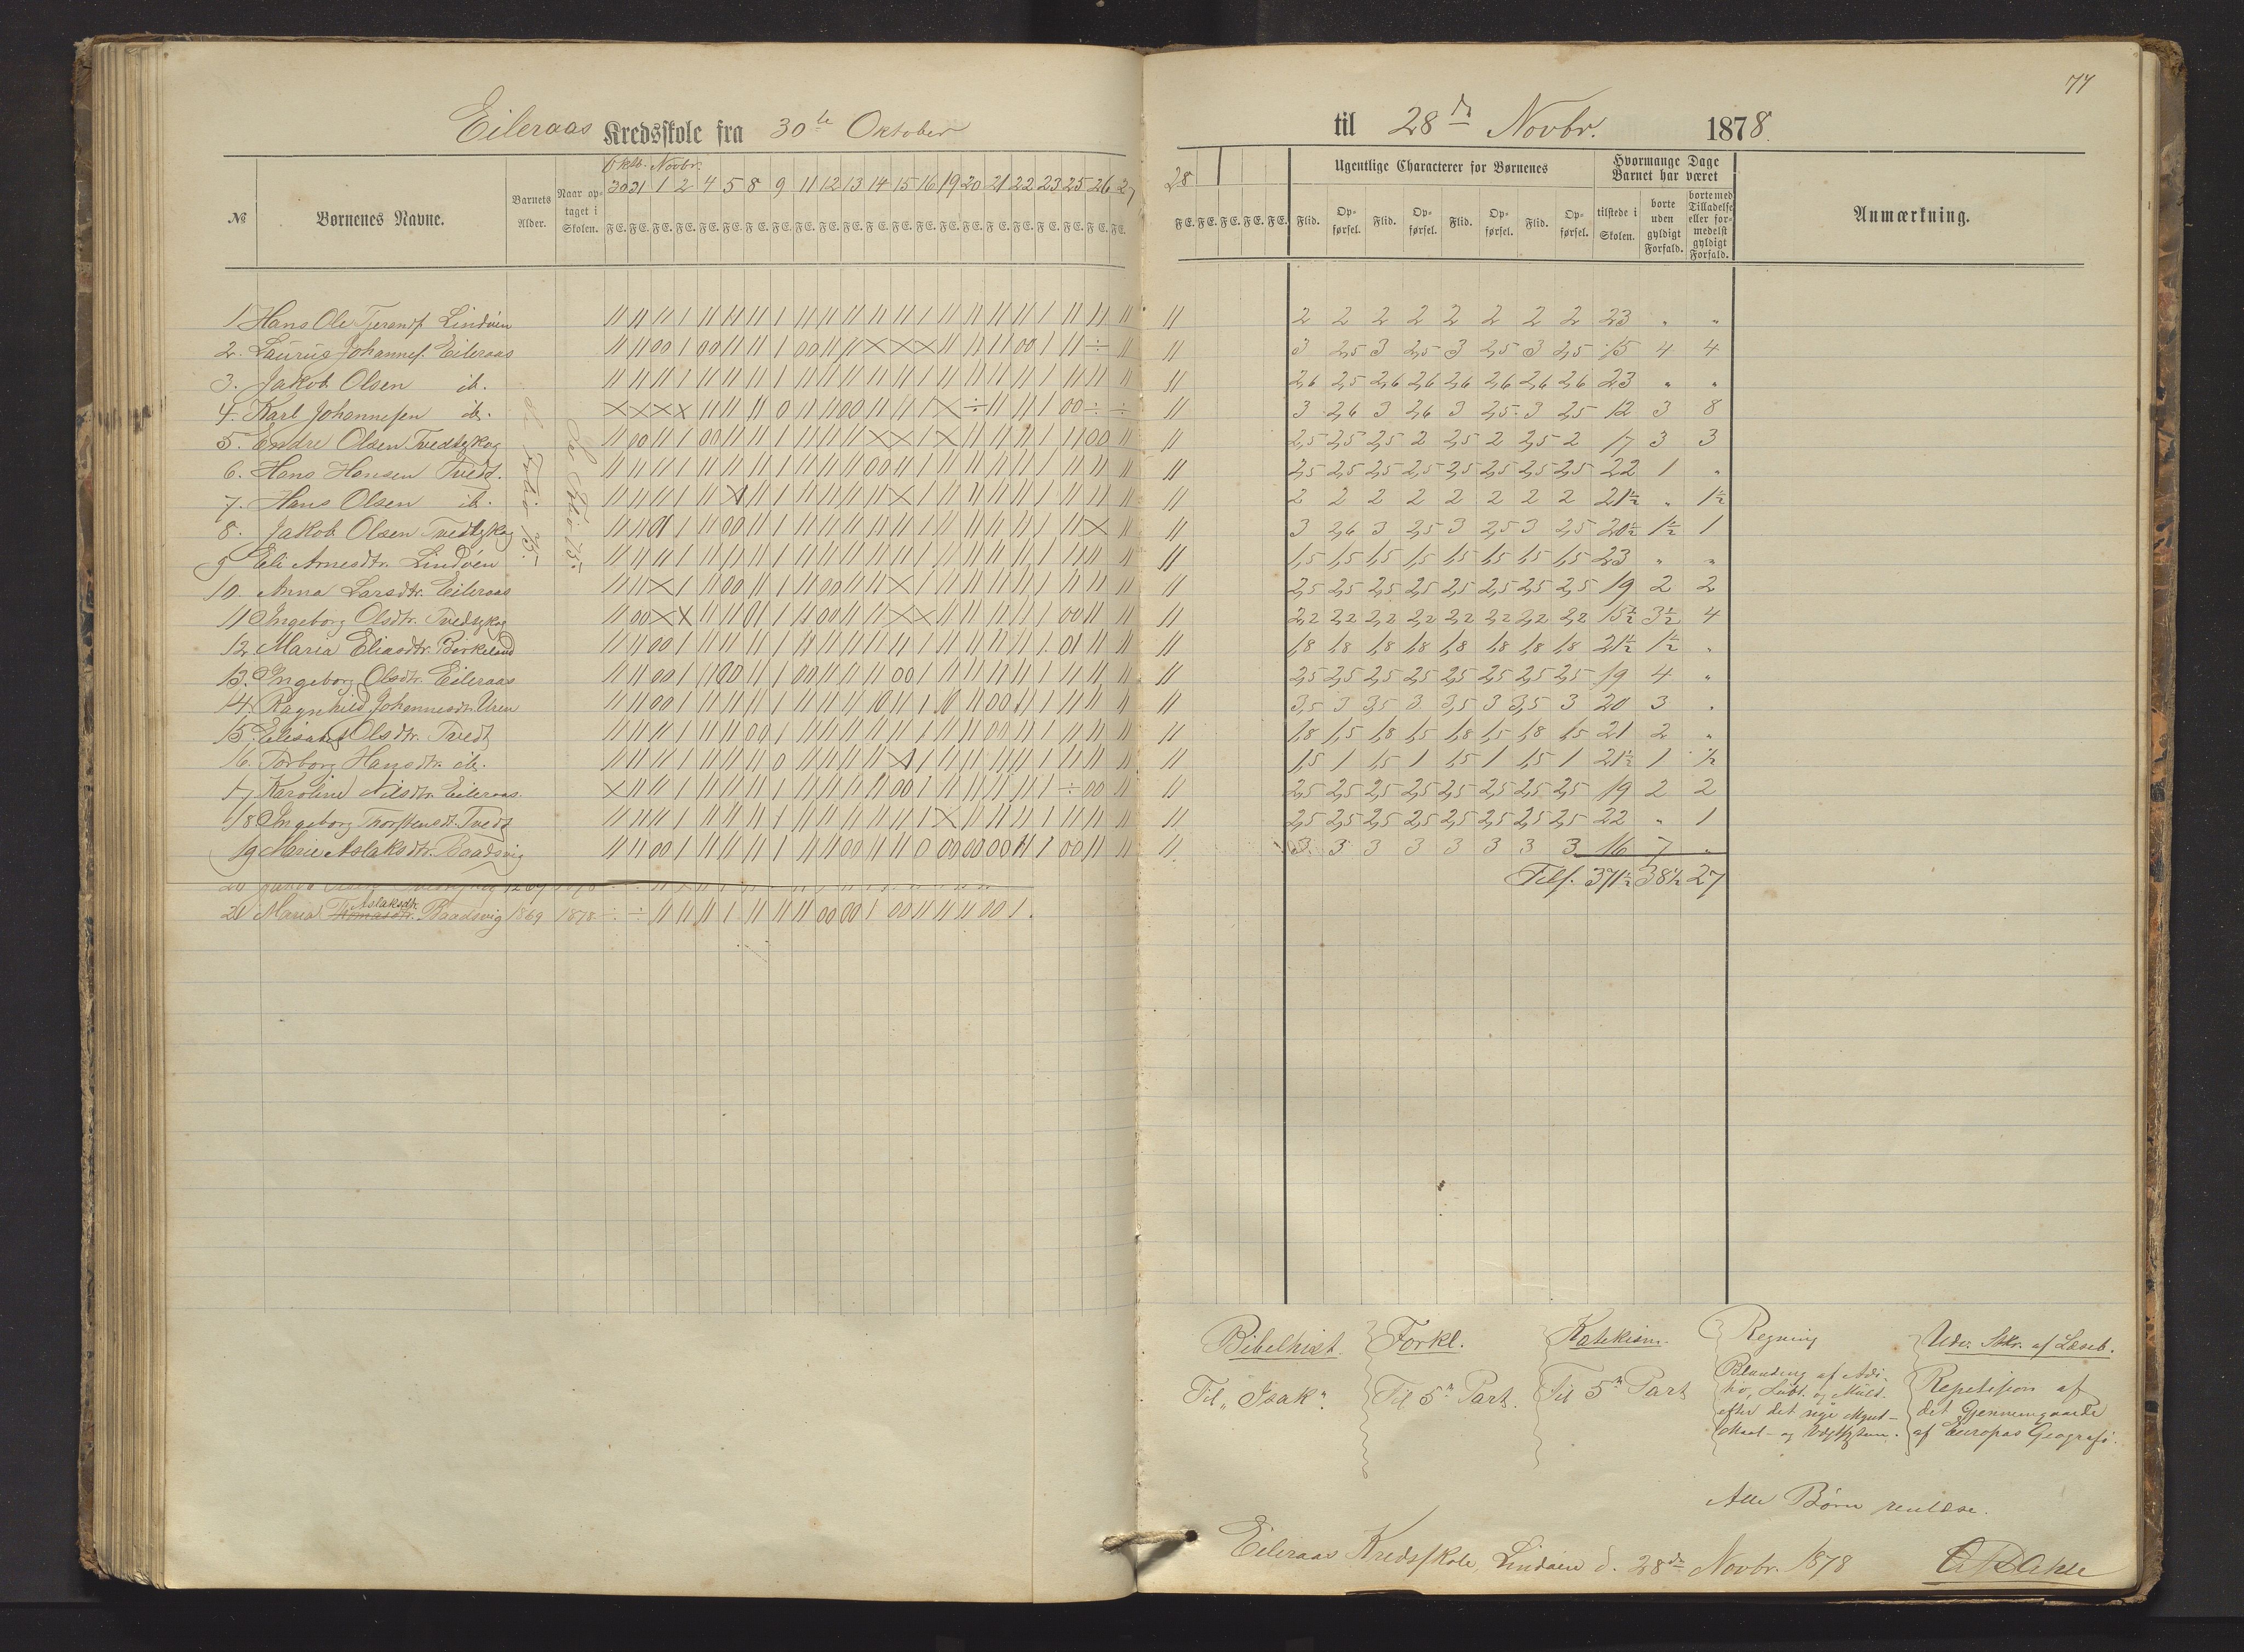 77
Eileraas Kredsskole fra 30te Oktober til 28de Novbr. 1878.
Oktb. Novbr.
№ Børnenes Navne. Barnets Alder. Naar optaget i Skolen. 30 31 1 2 4 5 8 9 11 12 13 14 15 16 19 20 21 22 23 25 26 27 28 Ugentlige Characterer for Børnenes Hvormange Dage Barnet har været Anmærkning.
F E. F E. F E. F E. F E. F E. F E. F E. F E. F E. F E. F E. F E. F E. F E. F E. F E. F E. F E. F E. F E. F E. F E. F E. F E. F E. F E. Flid. Opførsel. Flid. Opførsel. Flid. Opførsel. Flid. Opførsel. tilstede i Skolen. borte uden gyldigt Forfald. borte med Tilladelse eller formedelst gyldigt Forfald.
Se Folio 75.
1 Hans Ole Lindøen 2 2 2 2 2 2 2 2 23 " "
2. Laurus Johannes. Eileraas 3 2,5 3 2,5 3 2,5 3 2,5 15 4 4
3. Jakob Olsen ib. 2,6 2,5 2,6 2,6 2,6 2,6 2,6 2,6 23 " "
4. Karl Johannesen ib. 3 2,6 3 2,6 3 2,5 3 2,5 12 3 8
5. Endre Olsen Tvedtskog 2,5 2,5 2,5 2 2,5 2 2,5 2 17 3 3
6. Hans Hansen Tvedt. 2,5 2,5 2,5 2,5 2,5 2,5 2,5 2,5 22 1 "
7. Hans Olsen ib. 2 2 2 2 2 2 2 2 21½ " 1½
8. Jakob Olsen Tvedtskog 3 2,6 3 2,5 3 2,5 3 2,5 20½ 1½ 1
9 Eli Arnesdtr. Lindøen 1,5 1,5 1,5 1,5 1,5 1,5 1,5 1,5 23 " "
10. Anna Larsdtr. Eileraas 2,5 2,5 2,5 2,5 2,5 2,5 2,5 2,5 19 2 2
11 Ingeborg Olsdtr. Tvedtskog 2,2 2,2 2,2 2,2 2,2 2,2 2,2 2,2 15½ 3½ 4
12 Maria Eliasdtr. Birkeland 1,8 1,8 1,8 1,8 1,8 1,8 1,8 1,8 21½ 1½ "
13. Ingeborg Olsdtr. Eileraas 2,5 2,5 2,5 2,5 2,5 2,5 2,5 2,5 19 4 "
14. Ragnhild Johannesdtr. Uren 3,5 3 3,5 3 3,5 3 3,5 3 20 3 "
15. Elisabet Olsdtr. Tvedt 1,8 1,5 1,8 1,5 1,8 1,5 1,8 1,5 21 2 "
16. Torborg Hansdtr. ib. 1,5 1 1,5 1 1,5 1 1,5 1 21½ 1 ½
17 Karoline Nilsdtr. Eileraas. 2,5 2,5 2,5 2,5 2,5 2,5 2,5 2,5 19 2 2
18 Ingeborg Thorstensdt. Tvedt 2,5 2,5 2,5 2,5 2,5 2,5 2,5 2,5 22 " 1
19 Marie Aslaksdtr. Baadsvig 3 3 3 3 3 3 3 3 16 7 "
Tils. 371½ 38½ 27
20 Jakob Olsen Tvedtskog
Aslaksdtr.
20 Maria Tomasdtr. Baadsvig 1869 1878
Bibelhist. Forkl. Katekism. Regning Udv. Stkr. af Læseb.
Til „Isak". Til 5te Part. Til 5te Part Blanding af Addi-
tio, Subt. og Mult. efter det nye Mynt- Maal- og Vægtsystem.
Repetision af det Gjennemgaaede af Europas Geografi.
Alle Børn renlæse.
Eileraas Kredsskole, Lindøen d. 28de Novbr. 1878